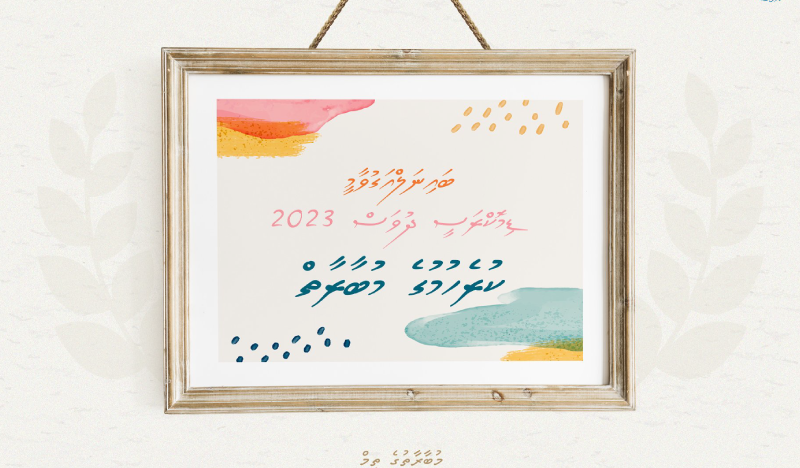 ބައިނަލްއަޤުވާމީ
ޑިމޮކްރަސީ ދުވަސް 2023
ކުރެހުމުގެ މުބާރާތް
މުބާރާތުގެ ތީމް